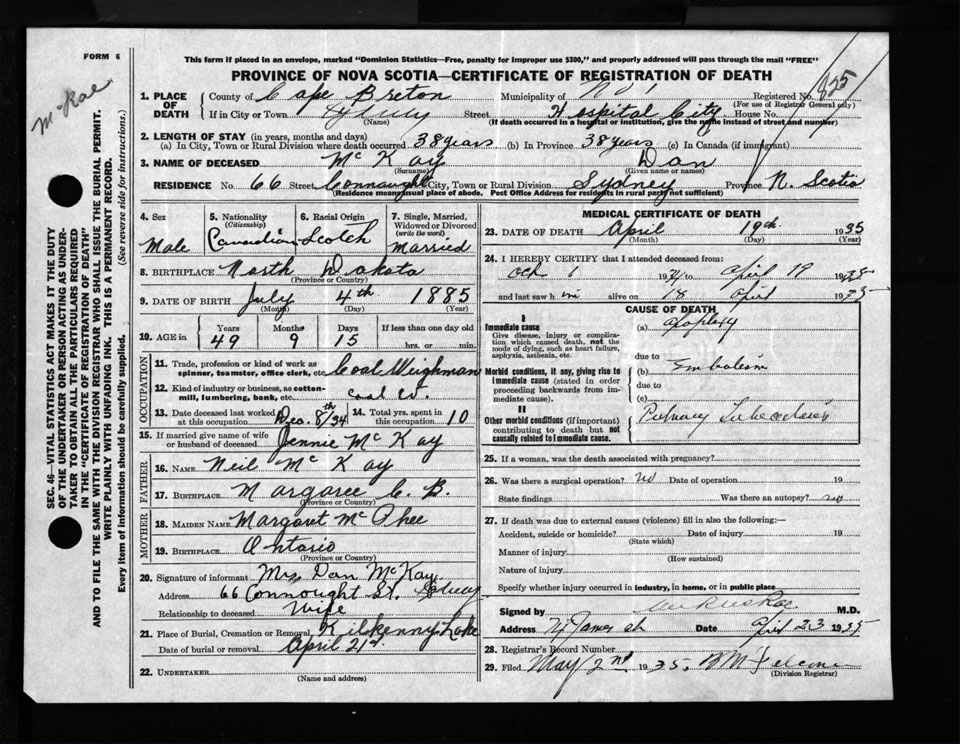 FORM 6
This form if placed in an envelope, marked "Dominion Statistics—Free, penalty for improper use $300," and properly addressed will pass through the mail "FREE"
PROVINCE OF NOVA SCOTIA—CERTIFICATE OF REGISTRATION OF DEATH
McKae
825
1. PLACE OF DEATH County of Cape Breton Municipality of No 1 Registered No.
(For use of Registrar General only)
If in City or Town Street Hospital City House No.
(Name) (If death occurred in a hospital or institution, give the name instead of street and number)
2. LENGTH OF STAY (in years, months and days)
(a) In City, Town or Rural Division where death occurred 38 years (b) In Province 38 years (c) In Canada (if immigrant)
3. NAME OF DECEASED McKay Dan
(Surname) (Given name or names)
RESIDENCE No. 66 Street Connaught City, Town or Rural Division Sydney Province N. Scotia
(Residence means usual place of abode. Post Office Address for residents in rural party not sufficient)
4. Sex
Male
5. Nationality
(Citizenship)
Canadian
6. Racial Origin
Scotch
7. Single, Married, Widowed or Divorced
(write the word)
Married
8. BIRTHPLACE North Dakota
(Province or Country)
9. DATE OF BIRTH July 4th 1885
(Month) (Day) (Year)
10. AGE in Years Months Days If less than one day old
49 9 15 hrs. or min.
OCCUPATION
11. Trade, profession or kind of work as spinner, teamster, office clerk, etc. Coal Weighman
12. Kind of industry or business, as cotton-mill, lumbering, bank, etc. coal co.
13. Date deceased last worked at this occupation Dec. 8th/34 14. Total yrs. spent in this occupation 10
15. If married give name of wife or husband of deceased Jennie McKay
FATHER
16. NAME Neil McKay
17. BIRTHPLACE Margaree C. B.
(Province or Country)
MOTHER
18. MAIDEN NAME Margaret McPhee
19. BIRTHPLACE Ontario
(Province or Country)
20. Signature of informant Mrs Dan McKay
Address 66 Connought St. Sydney
Relationship to deceased Wife
21. Place of Burial, Cremation or Removal Kilkenny Lake
Date of burial or removal April 21st
22. UNDERTAKER
(Name and address)
MEDICAL CERTIFICATE OF DEATH
23. DATE OF DEATH April 19th 1935
(Month) (Day) (Year)
24. I HEREBY CERTIFY that I attended deceased from:
Oct 1 1934 to April 19 1935
and last saw him alive on 18 April 1935
CAUSE OF DEATH
I
Immediate cause
Give disease, injury or complication which caused death, not the mode of dying, such as heart failure, asphyxia, asthenia, etc.
(a) Apoplexy
due to
Morbid conditions, if any, giving rise to immediate cause (stated in order proceeding backwards from immediate cause).
(b) Embolism
due to
(c)
II
Other morbid conditions (if important) contributing to death but not causally related to immediate cause.
Pulmonary Tuberculosis
25. If a woman, was the death associated with pregnancy?
26. Was there a surgical operation? no Date of operation 19
State findings Was there an autopsy? no
27. If death was due to external causes (violence) fill in also the following:—
Accident, suicide or homicide? Date of injury 19
(State which)
Manner of injury
(How sustained)
Nature of injury
Specify whether injury occurred in industry, in home, or in public place
Signed by M.D.
Address James St Date April 23 1935
28. Registrar's Record Number
29. Filed May 2nd 1935.
(Division Registrar)
SEC. 46—VITAL STATISTICS ACT MAKES IT THE DUTY
OF THE UNDERTAKER OR PERSON ACTING AS UNDER-
TAKER TO OBTAIN ALL THE PARTICULARS REQUIRED
IN THE "CERTIFICATE OF REGISTRATION OF DEATH"
AND TO FILE THE SAME WITH THE DIVISION REGISTRAR WHO SHALL ISSUE THE BURIAL PERMIT.
WRITE PLAINLY WITH UNFADING INK. THIS IS A PERMANENT RECORD.
Every item of information should be carefully supplied. (See reverse side for instructions.)